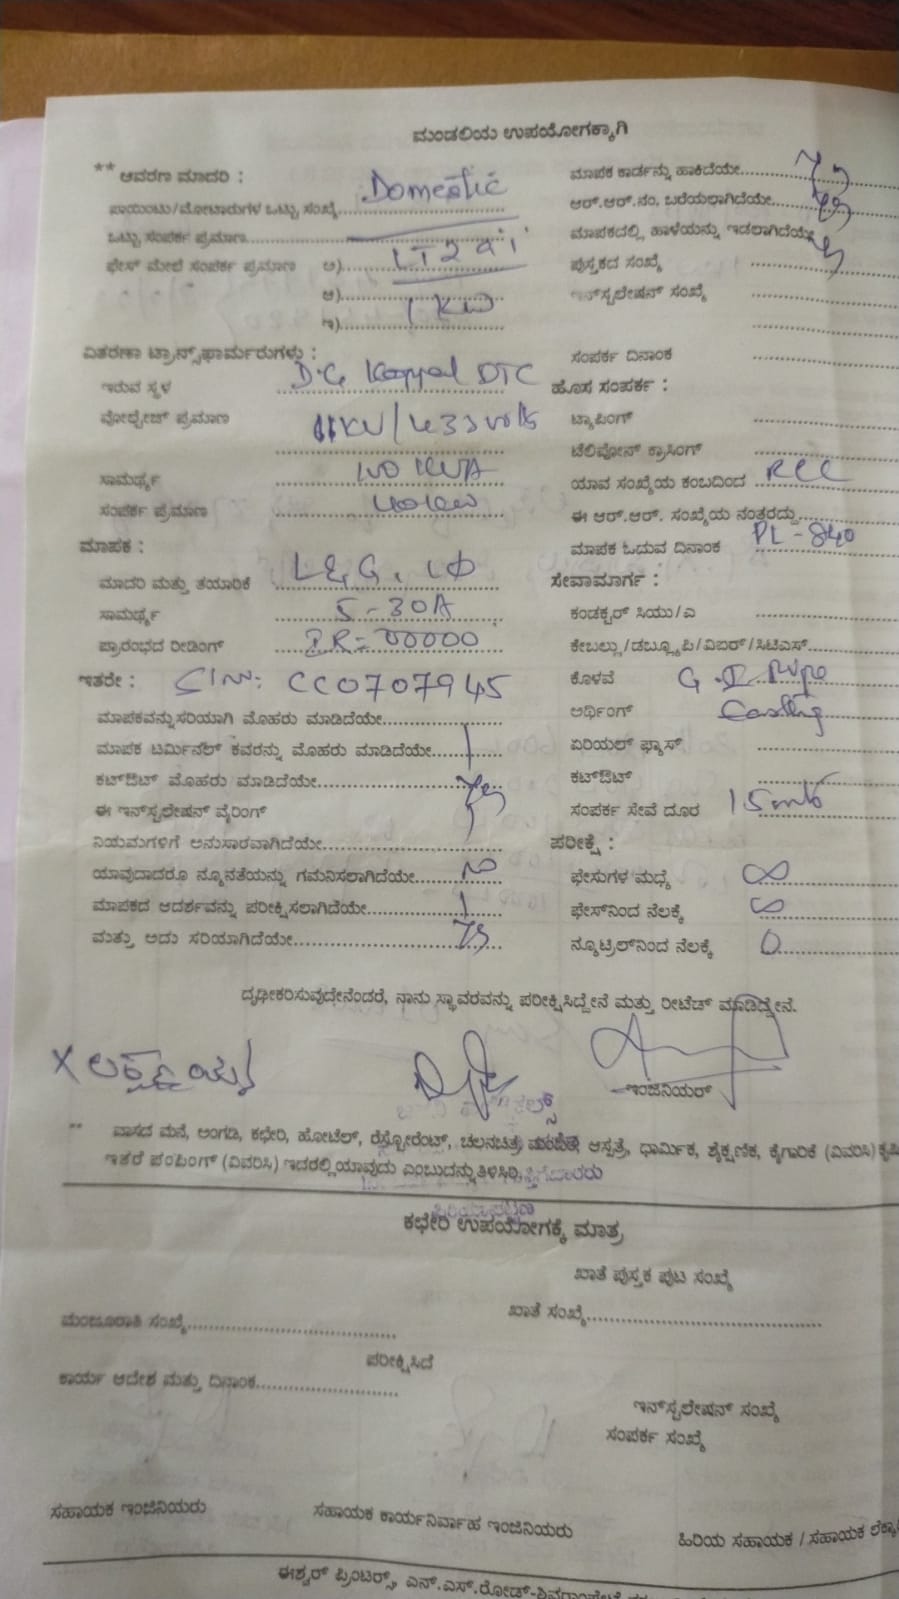 ಮಂಡಲಿಯ ಉಪಯೋಗಕ್ಕಾಗಿ
** ಆವರಣ ಮಾದರಿ : Domestic
ಪಾಯಿಂಟು/ಮೋಟಾರುಗಳ ಒಟ್ಟು ಸಂಖ್ಯೆ
ಒಟ್ಟು ಸಂಪರ್ಕ ಪ್ರಮಾಣ
ಫೇಸ್ ಮೇಲೆ ಸಂಪರ್ಕ ಪ್ರಮಾಣ ಅ) LT2ai
ಆ) 1 KW
ಇ)
ವಿತರಣಾ ಟ್ರಾನ್ಸ್‌ಫಾರ್ಮರುಗಳು :
ಇರುವ ಸ್ಥಳ D.G Koppal DTC
ವೋಲ್ಟೇಜ್ ಪ್ರಮಾಣ 11KV/433 volts
ಸಾಮರ್ಥ್ಯ KVA
ಸಂಪರ್ಕ ಪ್ರಮಾಣ
ಮಾಪಕ :
ಮಾದರಿ ಮತ್ತು ತಯಾರಿಕೆ L&G, 1Φ
ಸಾಮರ್ಥ್ಯ 5-30A
ಪ್ರಾರಂಭದ ರೀಡಿಂಗ್ IR=00000
ಇತರೇ : Sl No: CC0707945
ಮಾಪಕವನ್ನು ಸರಿಯಾಗಿ ಮೊಹರು ಮಾಡಿದೆಯೇ
ಮಾಪಕ ಟರ್ಮಿನಲ್ ಕವರನ್ನು ಮೊಹರು ಮಾಡಿದೆಯೇ
ಕಟ್‌ಔಟ್ ಮೊಹರು ಮಾಡಿದೆಯೇ Yes
ಈ ಇನ್‌ಸ್ಟಲೇಷನ್ ವೈರಿಂಗ್
ನಿಯಮಗಳಿಗೆ ಅನುಸಾರವಾಗಿದೆಯೇ
ಯಾವುದಾದರೂ ನ್ಯೂನತೆಯನ್ನು ಗಮನಿಸಲಾಗಿದೆಯೇ No
ಮಾಪಕದ ಆದರ್ಶವನ್ನು ಪರೀಕ್ಷಿಸಲಾಗಿದೆಯೇ
ಮತ್ತು ಅದು ಸರಿಯಾಗಿದೆಯೇ Yes
ಮಾಪಕ ಕಾರ್ಡನ್ನು ಹಾಕಿದೆಯೇ Yes
ಆರ್.ಆರ್.ನಂ. ಬರೆಯಲಾಗಿದೆಯೇ Yes
ಮಾಪಕದಲ್ಲಿ ಹಾಳೆಯನ್ನು ಇಡಲಾಗಿದೆಯೇ
ಪುಸ್ತಕದ ಸಂಖ್ಯೆ
ಇನ್‌ಸ್ಟಲೇಷನ್ ಸಂಖ್ಯೆ
ಸಂಪರ್ಕ ದಿನಾಂಕ
ಹೊಸ ಸಂಪರ್ಕ :
ಟ್ಯಾಪಿಂಗ್
ಟೆಲಿಪೋನ್ ಕ್ರಾಸಿಂಗ್
ಯಾವ ಸಂಖ್ಯೆಯ ಕಂಬದಿಂದ RCC
ಈ ಆರ್.ಆರ್. ಸಂಖ್ಯೆಯ ನಂತರದ್ದು
ಮಾಪಕ ಓದುವ ದಿನಾಂಕ PL-840
ಸೇವಾಮಾರ್ಗ :
ಕಂಡಕ್ಟರ್ ಸಿಯು/ಎ
ಕೇಬಲ್ಲು/ಡಬ್ಲ್ಯೂಪಿ/ವಿಐರ್/ಸಿಟಿಎಸ್
ಕೊಳವೆ G.I. Pipe
ಅರ್ಥಿಂಗ್
ಏರಿಯಲ್ ಫ್ಯೂಸ್
ಕಟ್‌ಔಟ್
ಸಂಪರ್ಕ ಸೇವೆ ದೂರ 15 mts
ಪರೀಕ್ಷೆ :
ಫೇಸುಗಳ ಮಧ್ಯೆ ∞
ಫೇಸ್‌ನಿಂದ ನೆಲಕ್ಕೆ ∞
ನ್ಯೂಟ್ರಲ್‌ನಿಂದ ನೆಲಕ್ಕೆ 0
ದೃಢೀಕರಿಸುವುದೇನೆಂದರೆ, ನಾನು ಸ್ಥಾವರವನ್ನು ಪರೀಕ್ಷಿಸಿದ್ದೇನೆ ಮತ್ತು ರೀಟೆಡ್ ಮಾಡಿದ್ದೇನೆ.
ಇಂಜಿನಿಯರ್
** ವಾಸದ ಮನೆ, ಅಂಗಡಿ, ಕಛೇರಿ, ಹೋಟೆಲ್, ರೆಸ್ಟೋರೆಂಟ್, ಚಲನಚಿತ್ರ ಮಂದಿರ, ಆಸ್ಪತ್ರೆ, ಧಾರ್ಮಿಕ, ಶೈಕ್ಷಣಿಕ, ಕೈಗಾರಿಕೆ (ವಿವರಿಸಿ)
ಇತರೆ ಪಂಪಿಂಗ್ (ವಿವರಿಸಿ) ಇದರಲ್ಲಿ ಯಾವುದು ಎಂಬುದನ್ನು ತಿಳಿಸಿರಿ.
ಕಛೇರಿ ಉಪಯೋಗಕ್ಕೆ ಮಾತ್ರ
ಖಾತೆ ಪುಸ್ತಕ ಪುಟ ಸಂಖ್ಯೆ
ಮಂಜೂರಾತಿ ಸಂಖ್ಯೆ ಖಾತೆ ಸಂಖ್ಯೆ
ಪರೀಕ್ಷಿಸಿದೆ
ಕಾರ್ಯ ಆದೇಶ ಮತ್ತು ದಿನಾಂಕ
ಇನ್‌ಸ್ಟಲೇಷನ್ ಸಂಖ್ಯೆ
ಸಂಪರ್ಕ ಸಂಖ್ಯೆ
ಸಹಾಯಕ ಇಂಜಿನಿಯರು ಸಹಾಯಕ ಕಾರ್ಯನಿರ್ವಾಹ ಇಂಜಿನಿಯರು ಹಿರಿಯ ಸಹಾಯಕ / ಸಹಾಯಕ
ಈಶ್ವರ್ ಪ್ರಿಂಟರ್ಸ್, ಎನ್.ಎಸ್.ರೋಡ್